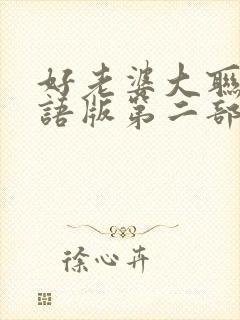 好老婆大聯
語版第二部
徐心卉